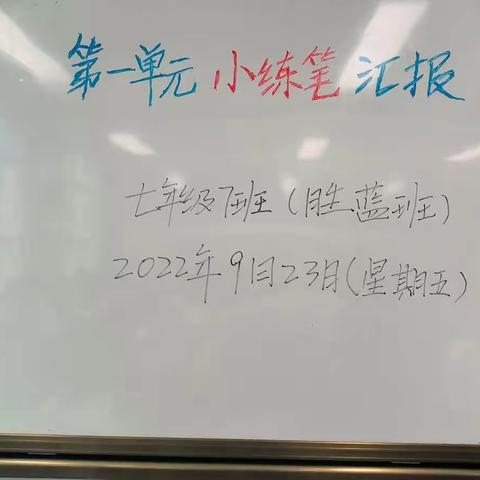 第一单元小练笔汇报
七年级7班(胜蓝班)
2022年9月23日(星期五)